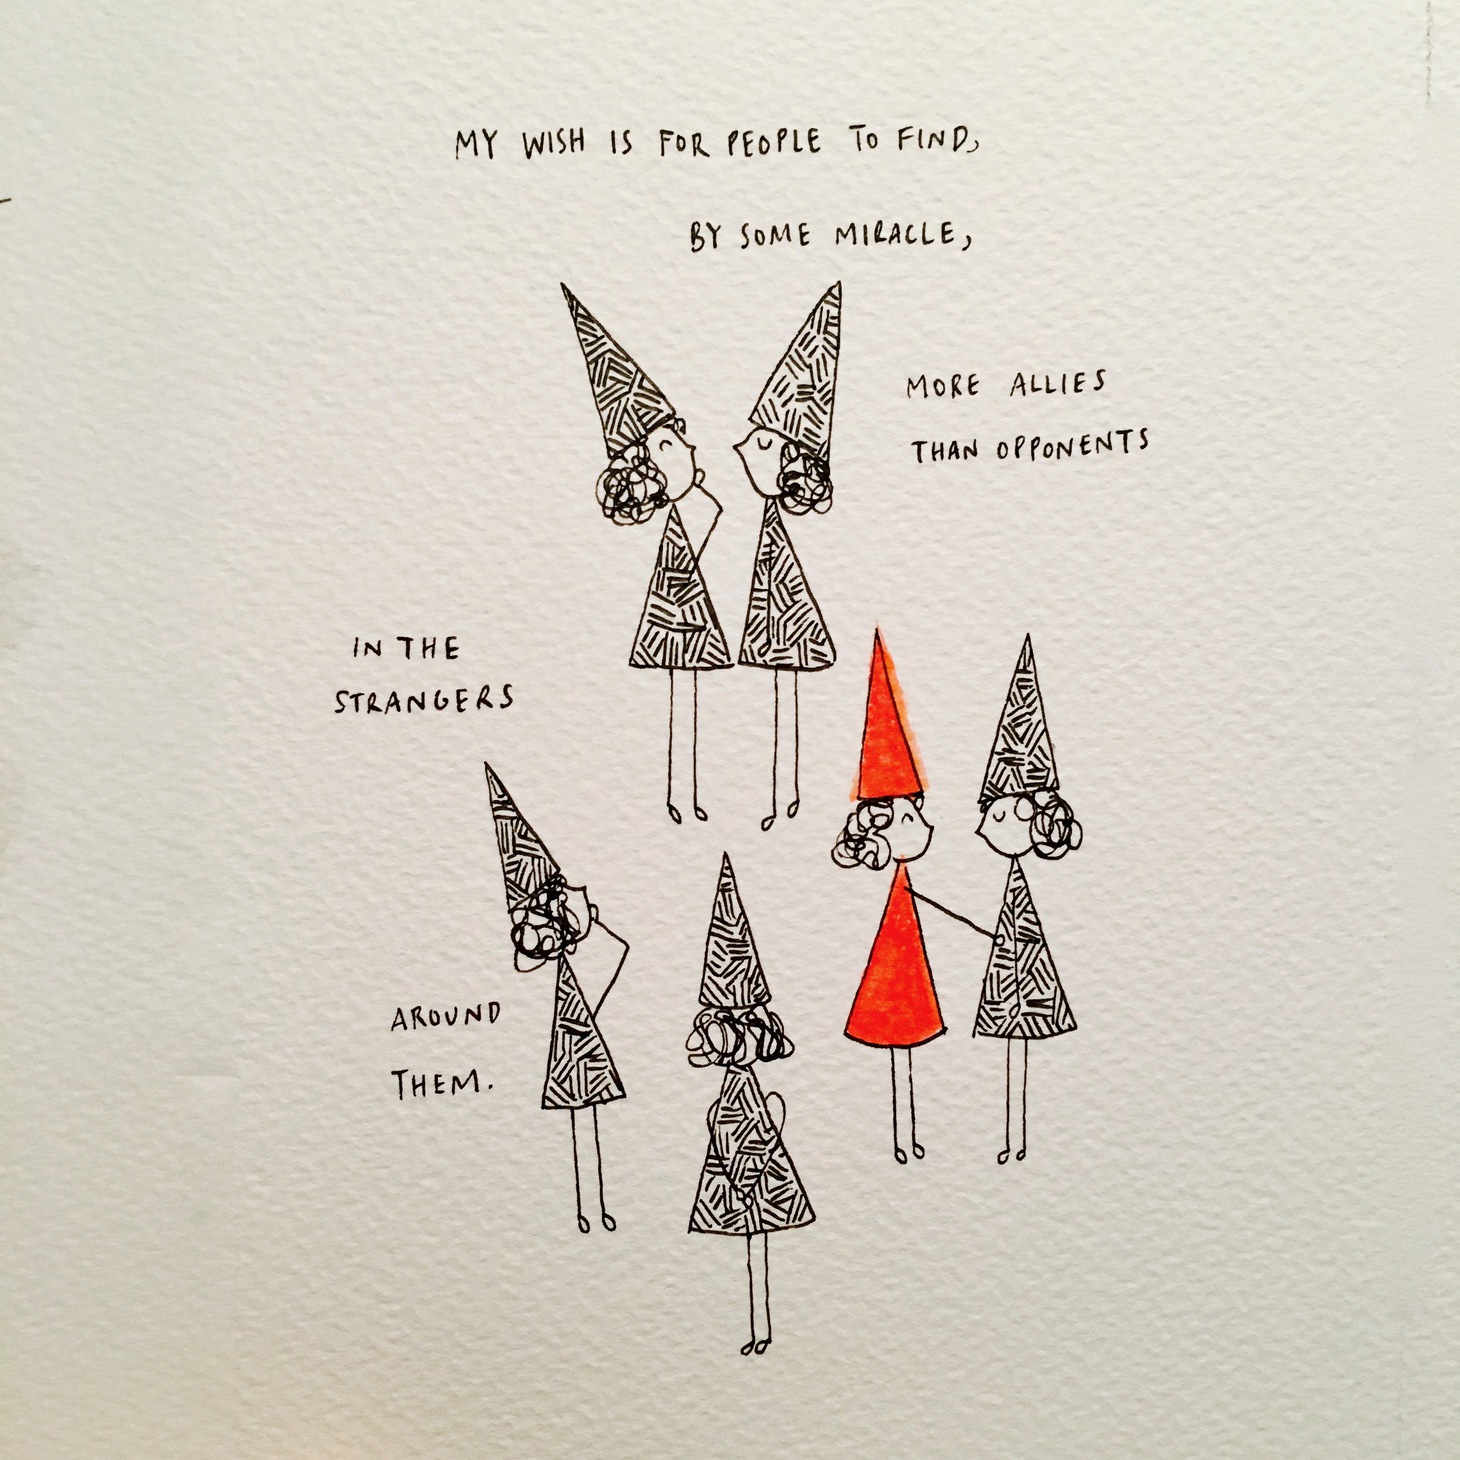 MY WISH IS FOR PEOPLE TO FIND,
BY SOME MIRACLE,
MORE ALLIES
THAN OPPONENTS
IN THE
STRANGERS
AROUND
THEM.